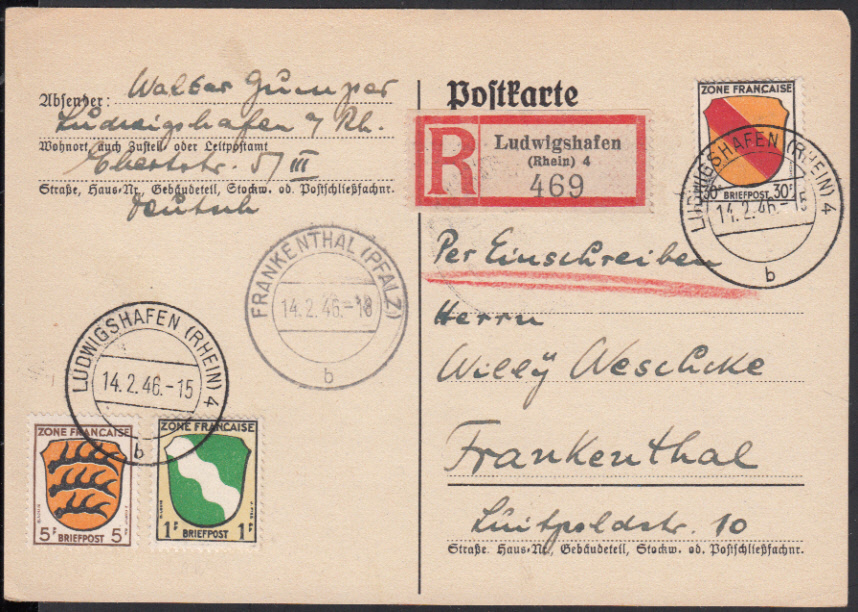 Absender: Walter Gumper
Ludwigshafen a/Rh.
Wohnort, auch Zustell- oder Leitpostamt
Ebertstr. 57 III
Straße, Haus-Nr., Gebäudeteil, Stockw. od. Postschließfachnr.
Deutsch
Postkarte
R
Ludwigshafen
(Rhein) 4
469
ZONE FRANÇAISE
30F BRIEFPOST 30F
LUDWIGSHAFEN (RHEIN) 4
14.2.46.-15
b
Per Einschreiben
FRANKENTHAL (PFALZ)
14.2.46.-18
b
Herrn
Willÿ Weschke
Frankenthal
Luitpoldstr. 10
Straße, Haus-Nr., Gebäudeteil, Stockw. od. Postschließfachnr.
LUDWIGSHAFEN (RHEIN) 4
14.2.46.-15
b
ZONE FRANÇAISE
5F BRIEFPOST 5F
ZONE FRANÇAISE
1F BRIEFPOST 1F